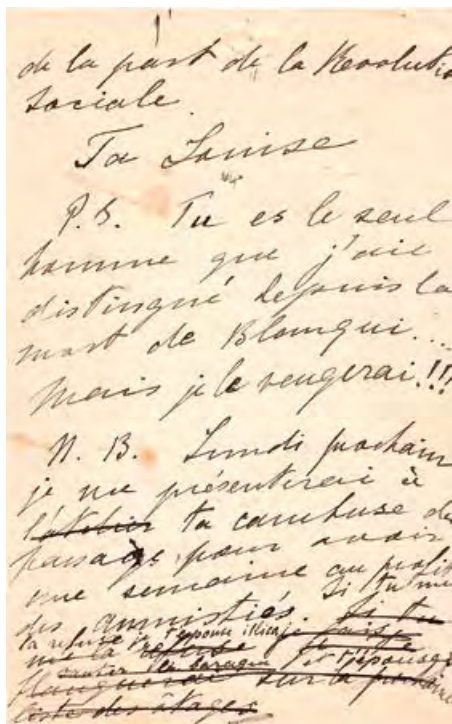 de la part de la Revolutio
Sociale
Ta Louise
P.S. Tu es le seul
homme que j'aie
distingué depuis la
mort de Blanqui....
Mais je le vengerai!!!
N. B. Lundi prochain
je me présenterai à
l'atelier ta cambuse du
passage pour avoir
une semaine au profit
des amnistiés. Si tu me
Si tu
la refuse je t'épouse illico je fais
me la refuse
sauter la baraque et t'épouse
flanquerai sur la première
liste des ôtages